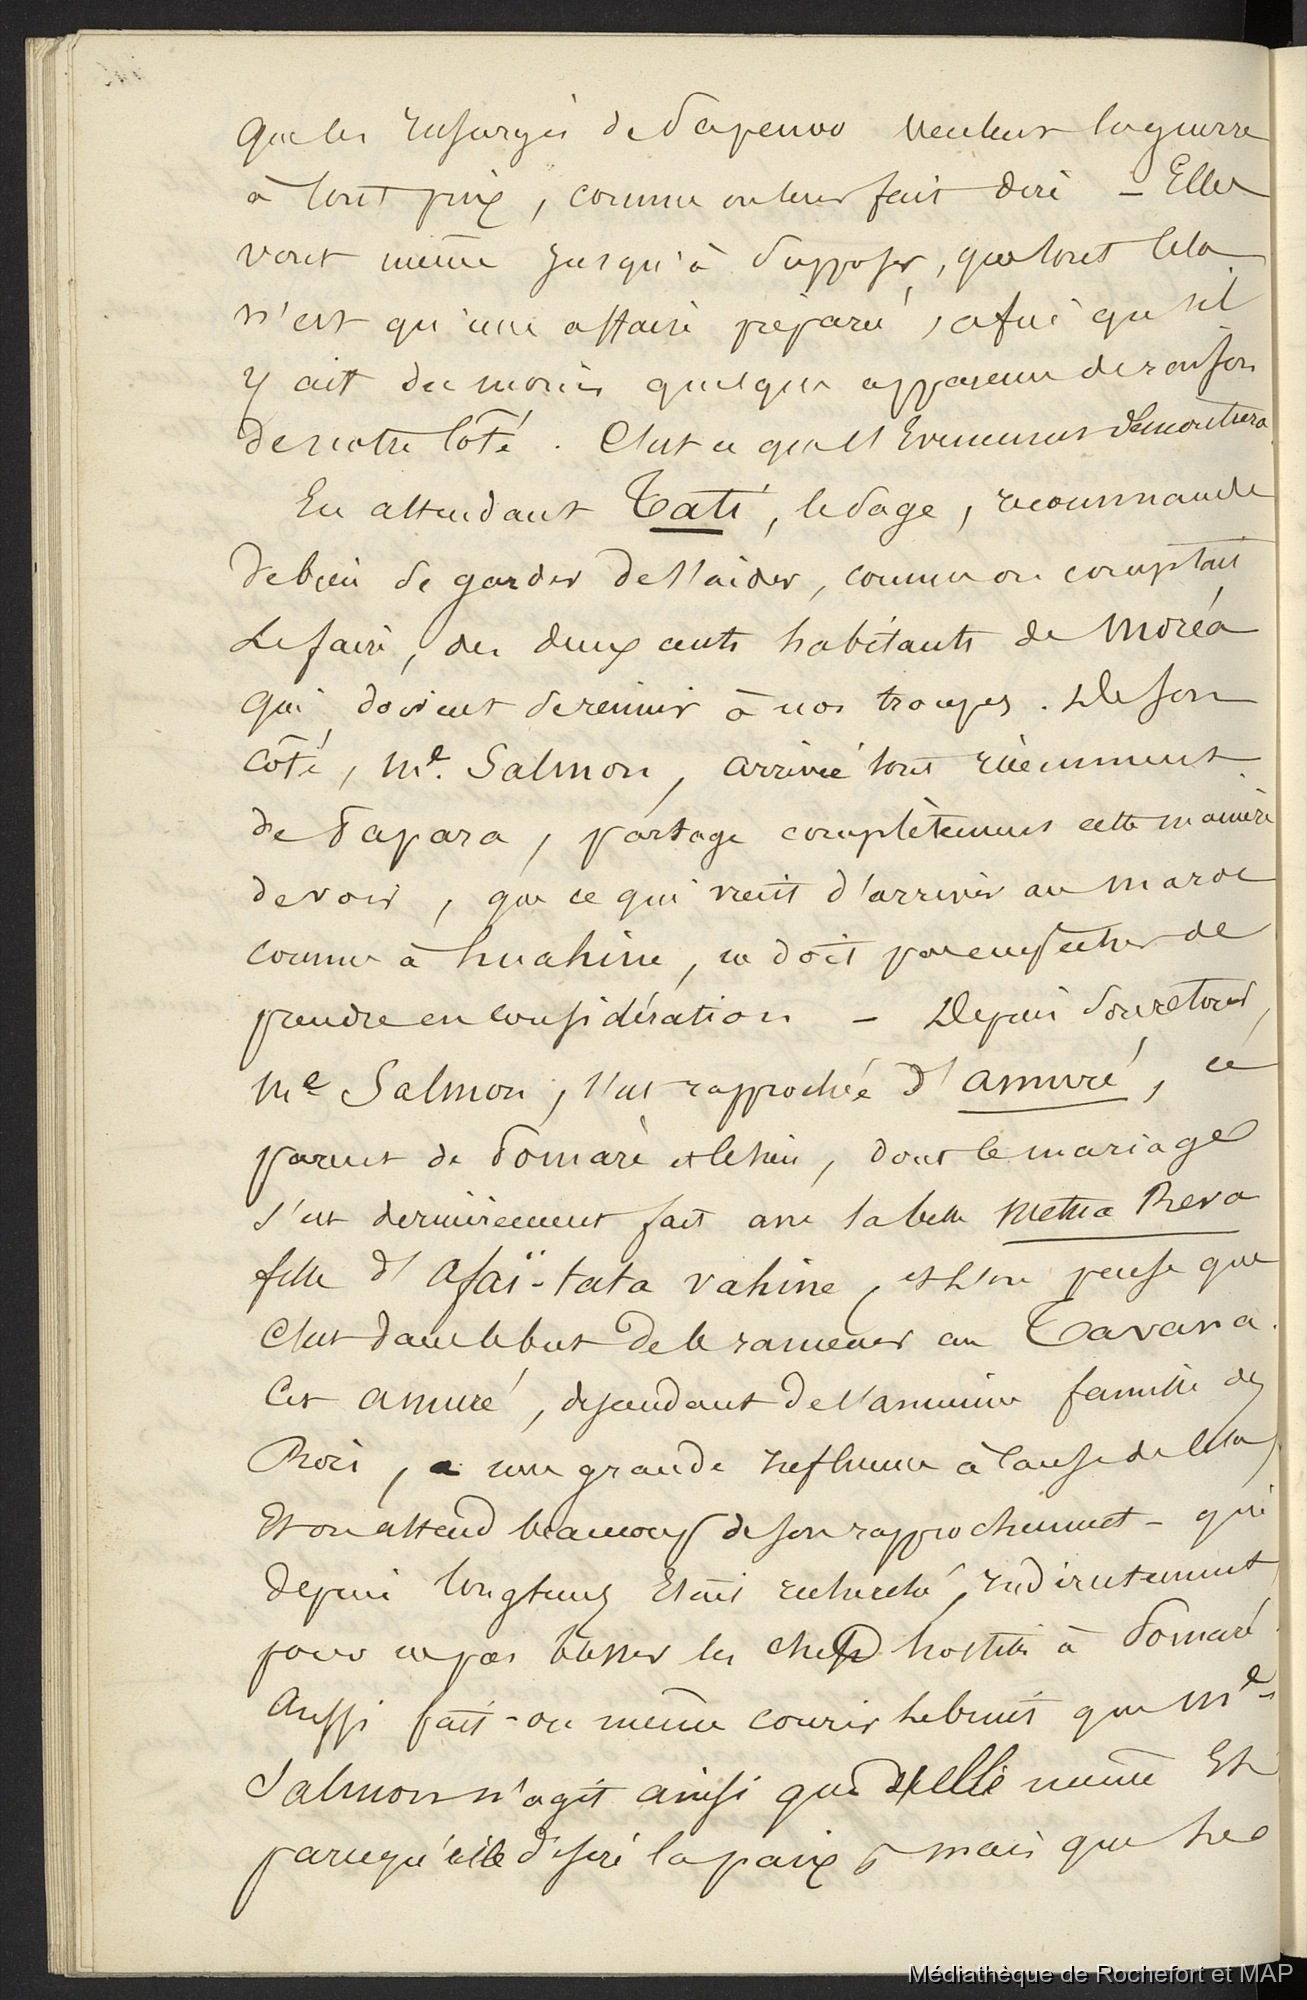 que les insurgés de Papenoo veulent la guerre
à tout prix, comme on leur fait dire – Elles
vont même jusqu'à supposer, que tout cela
n'est qu'une affaire préparé, afin qu'il
y ait du moins quelque apparence de raison
de notre côté. C'est ce que les Evénemens démontrera
En attendant Tati, le sage, recommande
de bien se garder de s'aider, comme on comptait
le faire, des deux cents habitants de Moréa
qui doivent se réunir à nos troupes. De son
côté, Me. Salmon, arrivée tout récemment
de Papara, partage complètement cette manière
de voir, que ce qui vient d'arriver au Maroc
comme à huahine, ne doit pas empêcher de
prendre en considération – Depuis son retour,
Me Salmon, s'est rapprochée d'Anuré, ce
parent de Pomaré et le sien, dont le mariage
s'est dernièrement fait avec la belle Metua Reva
fille d'Afaï-tata vahine, et l'on pense que
c'est dans le but de le ramener au Tavana.
Cet Anuré, descendant de l'ancienne famille des
Rois, a une grande influence à cause de cela,
Et on attend beaucoup de son rapprochement – qui
depuis longtems était recherché, indirectement
pour ne pas blesser les chefs hostiles à Pomaré.
Aussi fait-on même courir le bruit que Me
Salmon n'agit ainsi que d'elle même Et
parcequ'elle désire la paix, mais que les